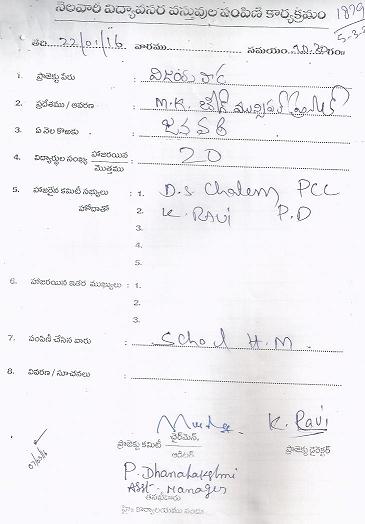 నెలవారీ విద్యావసర వస్తువుల పంపిణీ కార్యక్రమం
1829
5-3-2
తేది 22/01/16 వారము సమయం 10.30 గం॥
1. ప్రాజెక్టు పేరు విజయవాడ
2. ప్రదేశము / ఆవరణ M.K. మున్సిపల్
3. ఏ నెల కొఱకు జనవరి
4. విద్యార్థుల సంఖ్య హాజరయిన / మొత్తము 20
5. హాజరైన కమిటీ సభ్యులు : 1. D.S Chalem PCC
హోదాతో 2. K. RAVI P.D
3.
4.
5.
6. హాజరయిన ఇతర ముఖ్యులు : 1.
2.
3.
7. పంపిణీ చేసిన వారు School H.M.
8. వివరణ / సూచనలు
K. Ravi
ప్రాజెక్టు కమిటీ ఛైర్మెన్, ప్రాజెక్టు డైరెక్టర్
ఆడిటర్
P. Dhanalakshmi
Asst. Manager